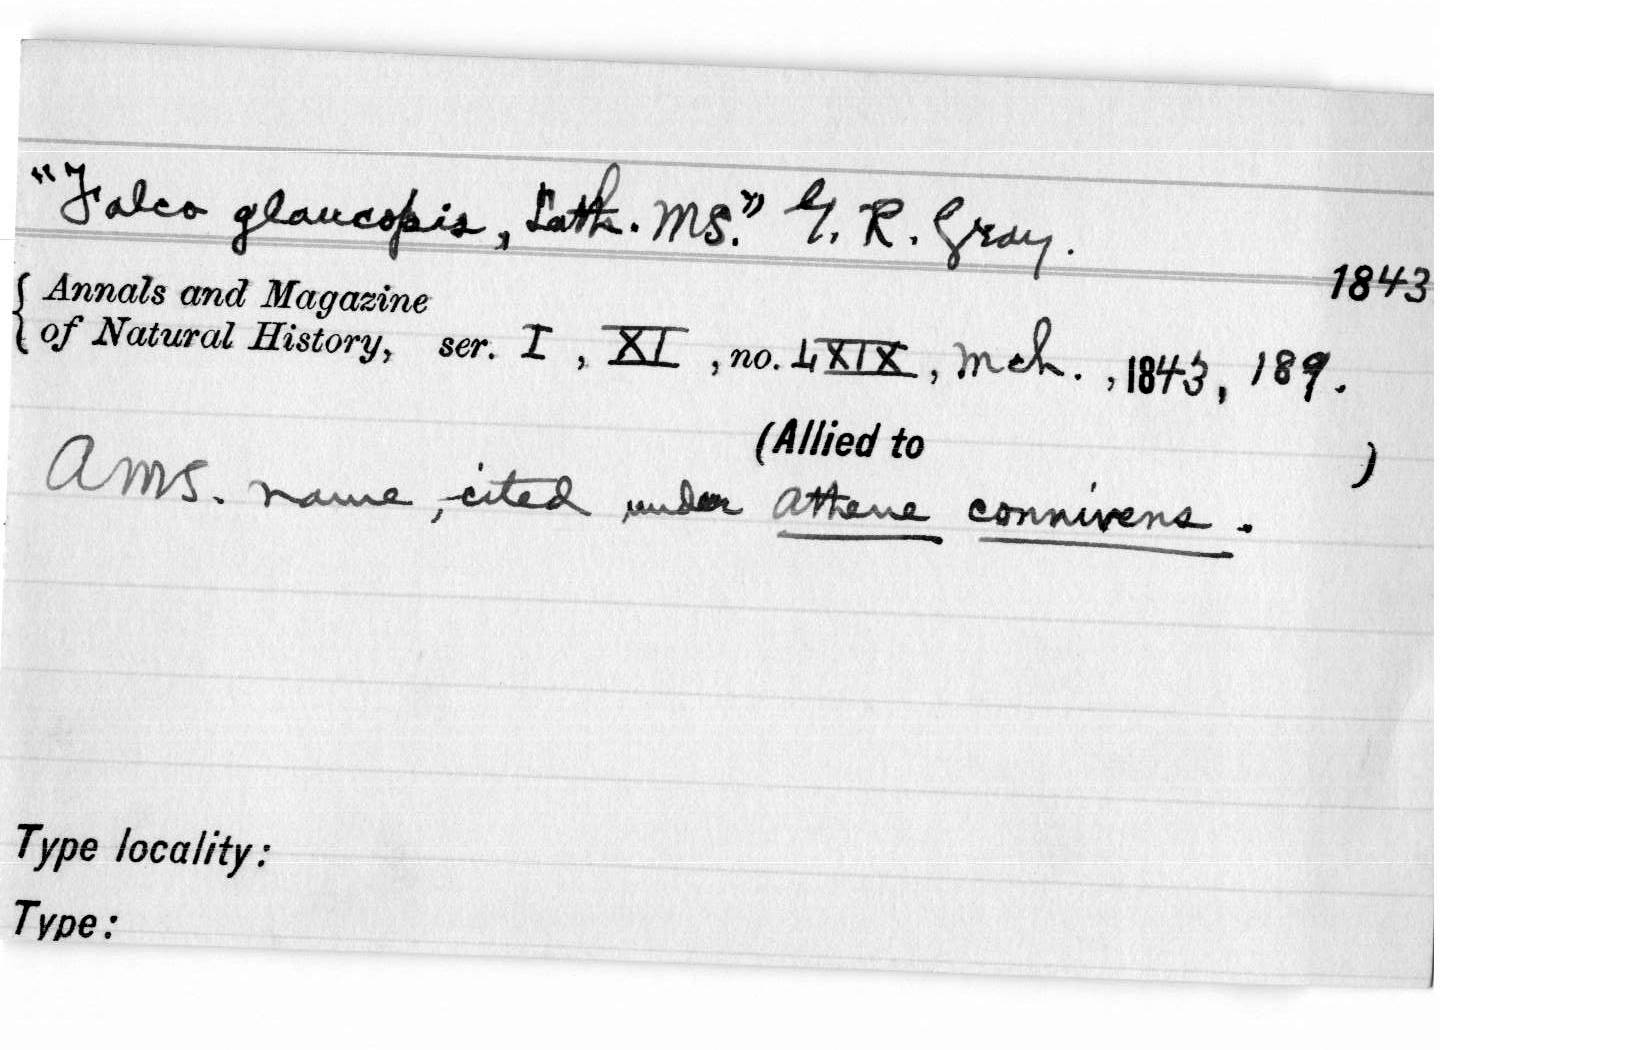 "Falco glaucopis, Lath. MS." G. R. Gray.
1843
{ Annals and Magazine
of Natural History, ser. I, XI, no. LXIX, Mch., 1843, 189.
(Allied to )
A MS. name, cited under Athene connivens.
Type locality:
Type: